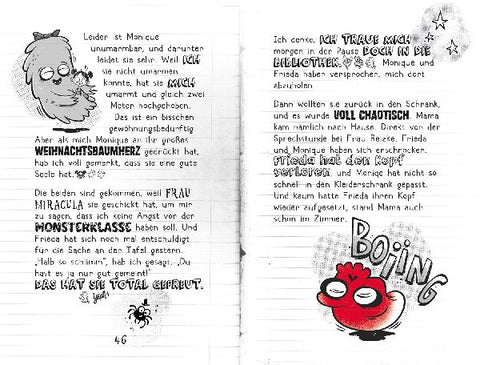 Leider ist Monique
unumarmbar, und darunter
leidet sie sehr. Weil ICH
sie nicht umarmen
konnte, hat sie MICH
umarmt und gleich zwei
Meter hochgehoben.
Das ist ein bisschen
gewöhnungsbedürftig.
Aber als mich Monique an ihr großes
WEIHNACHTSBAUMHERZ gedrückt hat,
hab ich voll gemerkt, dass sie eine gute
Seele hat.
Die beiden sind gekommen, weil FRAU
MIRACULA sie geschickt hat, um mir
zu sagen, dass ich keine Angst vor der
MONSTERKLASSE haben soll. Und
Frieda hat sich noch mal entschuldigt
für die Sache an der Tafel gestern.
„Halb so schlimm“, hab ich gesagt. „Du
hast es ja nur gut gemeint!“
DAS HAT SIE TOTAL GEFREUT.
46
Ich denke, ICH TRAUE MICH
morgen in der Pause DOCH IN DIE
BIBLIOTHEK. Monique und
Frieda haben versprochen, mich dort
abzuholen.
Dann wollten sie zurück in den Schrank,
und es wurde VOLL CHAOTISCH. Mama
kam nämlich nach Hause. Direkt von der
Sprechstunde bei Frau Reizke. Frieda
und Monique haben sich erschrocken.
Frieda hat den Kopf
verloren, und Monique hat nicht so
schnell in den Kleiderschrank gepasst.
Und kaum hatte Frieda ihren Kopf
wieder aufgesetzt, stand Mama auch
schon im Zimmer.
BOIING